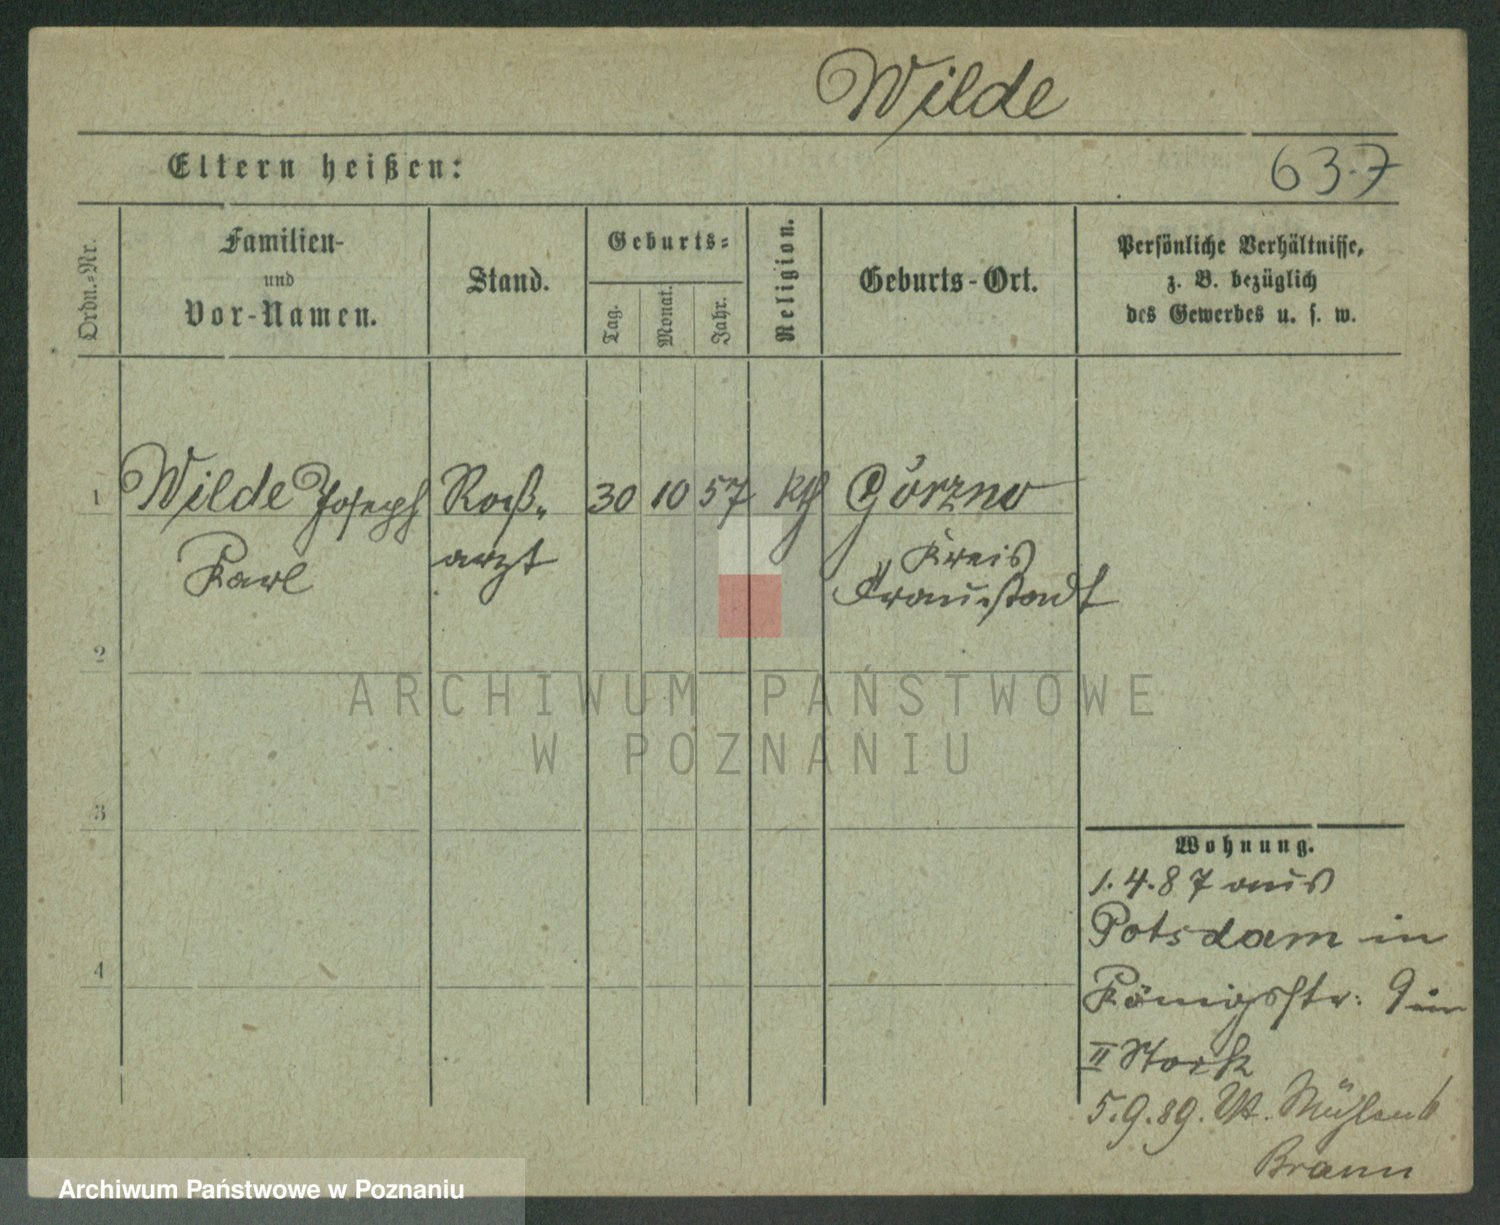 Wilde
Eltern heißen:
63.7
Ordn.-Nr.
Familien-
und
Vor-Namen.
Stand.
Geburts-
Tag.
Monat.
Jahr.
Religion.
Geburts-Ort.
Persönliche Verhältnisse,
z. B. bezüglich
des Gewerbes u. s. w.
1 Wilde Joseph Roß- 30 10 57 kth Görzno
Karl arzt Kreis
Fraustadt
2
ARCHIWUM PAŃSTWOWE
W POZNANIU
3
Wohnung.
1.4.87 aus
Potsdam in
4
Königsstr. 9 im
II Stock
5.9.89. Mühlen
Braun
Archiwum Państwowe w Poznaniu